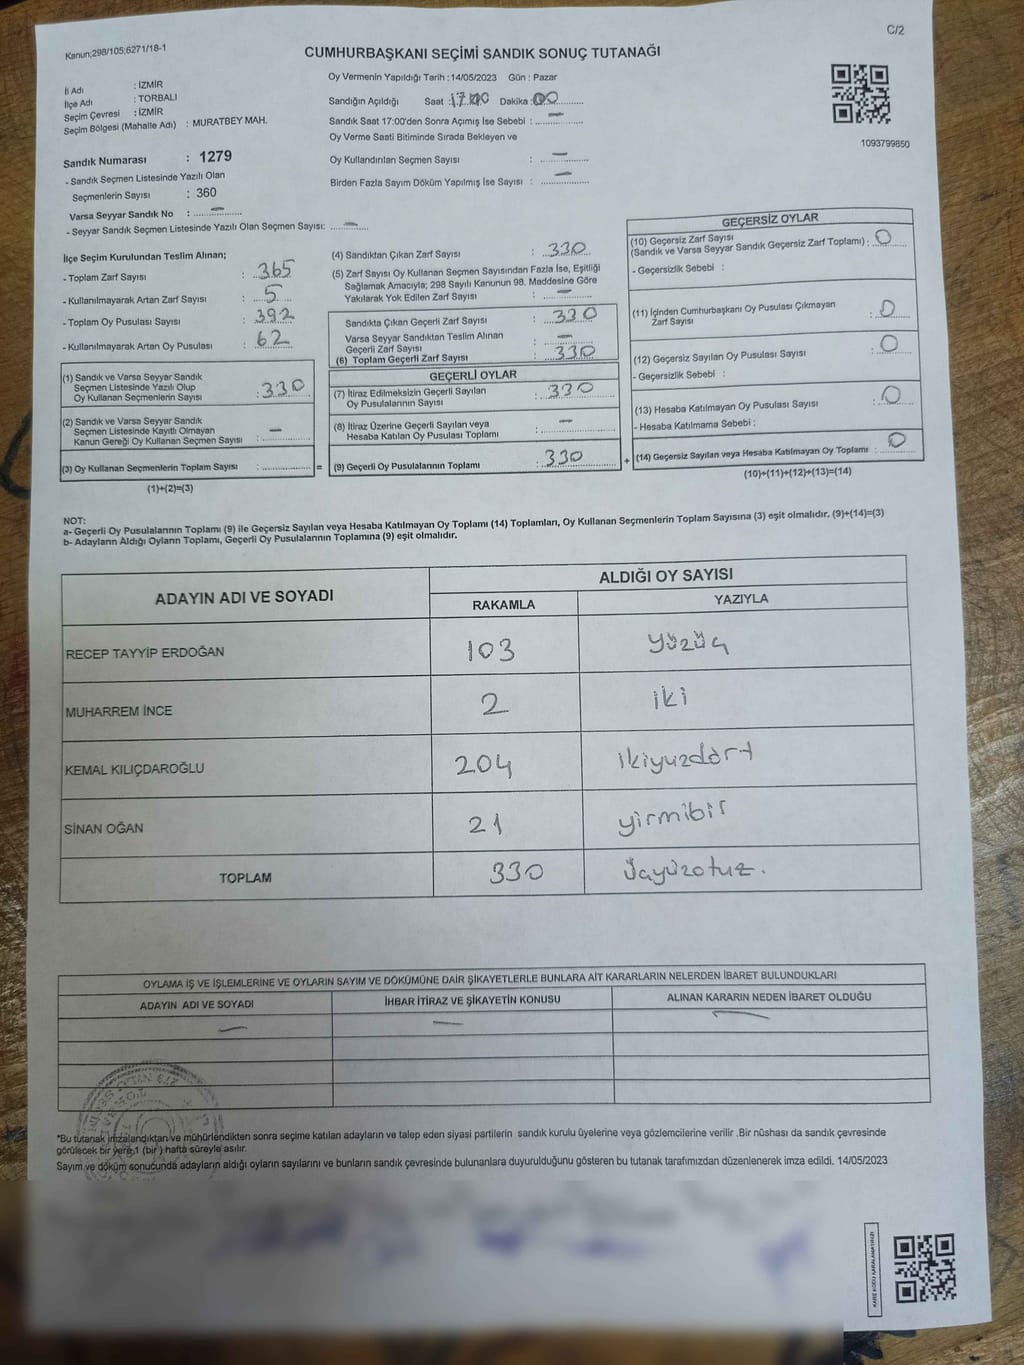 C/2
Kanun;298/105;6271/18-1
CUMHURBAŞKANI SEÇİMİ SANDIK SONUÇ TUTANAĞI
İl Adı : İZMİR
İlçe Adı : TORBALI
Seçim Çevresi : İZMİR
Seçim Bölgesi (Mahalle Adı) : MURATBEY MAH.
Oy Vermenin Yapıldığı Tarih : 14/05/2023 Gün : Pazar
Sandığın Açıldığı Saat : 17.00 Dakika : 00
Sandık Saat 17:00'den Sonra Açımış İse Sebebi : —
Oy Verme Saati Bitiminde Sırada Bekleyen ve
Oy Kullandırılan Seçmen Sayısı : —
Birden Fazla Sayım Döküm Yapılmış İse Sayısı : —
1093799850
Sandık Numarası : 1279
- Sandık Seçmen Listesinde Yazılı Olan
Seçmenlerin Sayısı : 360
Varsa Seyyar Sandık No : —
- Seyyar Sandık Seçmen Listesinde Yazılı Olan Seçmen Sayısı: —
İlçe Seçim Kurulundan Teslim Alınan;
- Toplam Zarf Sayısı : 365
- Kullanılmayarak Artan Zarf Sayısı : 5
- Toplam Oy Pusulası Sayısı : 392
- Kullanılmayarak Artan Oy Pusulası : 62
(1) Sandık ve Varsa Seyyar Sandık
Seçmen Listesinde Yazılı Olup
Oy Kullanan Seçmenlerin Sayısı : 330
(2) Sandık ve Varsa Seyyar Sandık
Seçmen Listesinde Kayıtlı Olmayan
Kanun Gereği Oy Kullanan Seçmen Sayısı : —
(3) Oy Kullanan Seçmenlerin Toplam Sayısı : =
(1)+(2)=(3)
(4) Sandıktan Çıkan Zarf Sayısı : 330
(5) Zarf Sayısı Oy Kullanan Seçmen Sayısından Fazla İse, Eşitliği
Sağlamak Amacıyla; 298 Sayılı Kanunun 98. Maddesine Göre
Yakılarak Yok Edilen Zarf Sayısı : —
Sandıkta Çıkan Geçerli Zarf Sayısı : 330
Varsa Seyyar Sandıktan Teslim Alınan
Geçerli Zarf Sayısı : —
(6) Toplam Geçerli Zarf Sayısı : 330
GEÇERLİ OYLAR
(7) İtiraz Edilmeksizin Geçerli Sayılan
Oy Pusulalarının Sayısı : 330
(8) İtiraz Üzerine Geçerli Sayılan veya
Hesaba Katılan Oy Pusulası Toplamı : —
(9) Geçerli Oy Pusulalarının Toplamı : 330 +
GEÇERSİZ OYLAR
(10) Geçersiz Zarf Sayısı
(Sandık ve Varsa Seyyar Sandık Geçersiz Zarf Toplamı) : 0
- Geçersizlik Sebebi :
(11) İçinden Cumhurbaşkanı Oy Pusulası Çıkmayan
Zarf Sayısı : 0
(12) Geçersiz Sayılan Oy Pusulası Sayısı : 0
- Geçersizlik Sebebi :
(13) Hesaba Katılmayan Oy Pusulası Sayısı : 0
- Hesaba Katılmama Sebebi :
(14) Geçersiz Sayılan veya Hesaba Katılmayan Oy Toplamı : 0
(10)+(11)+(12)+(13)=(14)
NOT:
a- Geçerli Oy Pusulalarının Toplamı (9) ile Geçersiz Sayılan veya Hesaba Katılmayan Oy Toplamı (14) Toplamları, Oy Kullanan Seçmenlerin Toplam Sayısına (3) eşit olmalıdır. (9)+(14)=(3)
b- Adayların Aldığı Oyların Toplamı, Geçerli Oy Pusulalarının Toplamına (9) eşit olmalıdır.
ADAYIN ADI VE SOYADI
ALDIĞI OY SAYISI
RAKAMLA YAZIYLA
RECEP TAYYİP ERDOĞAN 103 yüzüç
MUHARREM İNCE 2 iki
KEMAL KILIÇDAROĞLU 204 ikiyuzdört
SİNAN OĞAN 21 yirmibir
TOPLAM 330 üçyüzotuz.
OYLAMA İŞ VE İŞLEMLERİNE VE OYLARIN SAYIM VE DÖKÜMÜNE DAİR ŞİKAYETLERLE BUNLARA AİT KARARLARIN NELERDEN İBARET BULUNDUKLARI
ADAYIN ADI VE SOYADI İHBAR İTİRAZ VE ŞİKAYETİN KONUSU ALINAN KARARIN NEDEN İBARET OLDUĞU
— — —
*Bu tutanak imzalandıktan ve mühürlendikten sonra seçime katılan adayların ve talep eden siyasi partilerin sandık kurulu üyelerine veya gözlemcilerine verilir .Bir nüshası da sandık çevresinde
görülecek bir yere,1 (bir ) hafta süreyle asılır.
Sayım ve döküm sonucunda adayların aldığı oyların sayılarını ve bunların sandık çevresinde bulunanlara duyurulduğunu gösteren bu tutanak tarafımızdan düzenlenerek imza edildi. 14/05/2023